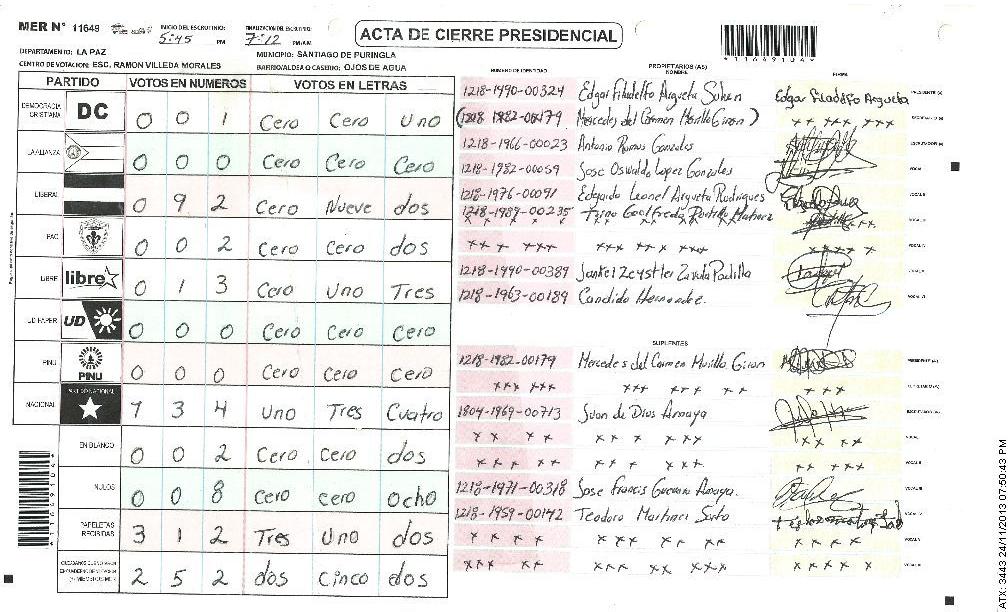 MER Nº 11649
INICIO DEL ESCRUTINIO: 5:45 PM
FINALIZACION DEL ESCRUTINIO: 7:12 PM/AM
ACTA DE CIERRE PRESIDENCIAL
*11649104*
DEPARTAMENTO: LA PAZ
MUNICIPIO: SANTIAGO DE PURINGLA
CENTRO DE VOTACION: ESC. RAMON VILLEDA MORALES
BARRIO/ALDEA O CASERIO: OJOS DE AGUA
PARTIDO VOTOS EN NUMEROS VOTOS EN LETRAS
DEMOCRACIA CRISTIANA DC 0 0 1 Cero Cero Uno
LA ALIANZA 0 0 0 Cero Cero Cero
LIBERAL 0 9 2 Cero Nueve dos
PAC 0 0 2 Cero Cero dos
LIBRE libre 0 1 3 Cero Uno Tres
UD PAPER UD 0 0 0 Cero Cero Cero
PINU PINU 0 0 0 Cero Cero Cero
NACIONAL PARTIDO NACIONAL 1 3 4 Uno Tres Cuatro
EN BLANCO 0 0 2 Cero Cero dos
NULOS 0 0 8 Cero cero ocho
PAPELETAS RECIBIDAS 3 1 2 Tres Uno dos
2 5 2 dos Cinco dos
*11649104*
NUMERO DE IDENTIDAD PROPIETARIOS (AS) NOMBRE FIRMA
1218-1990-00324 Edgar Filadelfo Argueta Edgar Filadelfo Argueta PRESIDENTE (A)
(1218 1982-00179 Mercedes del Carmen Murillo Giron) x x x x x x x x SECRETARIO (A)
1218-1966-00023 Antonio Ramos Gonzales ESCRUTADOR (A)
1218-1982-00059 Jose Oswaldo Lopez Gonzales VOCAL I
1218-1976-00091 Edgardo Leonel Argueta Rodrigues VOCAL II
1218-1987-00235 VOCAL III
x x x x x x x x x x x x x x x x x x VOCAL IV
1218-1990-00389 VOCAL V
1218-1963-00189 Candido Hernandez. VOCAL VI
SUPLENTES
1218-1982-00179 Mercedes del Carmen Murillo Giron PRESIDENTE (A)
x x x x x x x x x x x x x x x x x SECRETARIO (A)
1804-1969-00713 Juan de Dios Amaya ESCRUTADOR (A)
x x x x x x x x x x x x x x VOCAL I
x x x x x x x x x x x x x x VOCAL II
1218-1971-00318 Jose Francis Guevara Amaya. VOCAL III
1218-1959-00142 Teodoro Martinez VOCAL IV
x x x x x x x x x x x x x x x VOCAL V
x x x x x x x x x x x x x x x x x VOCAL VI
ATX: 3443 24/11/2013 07:50:43 PM